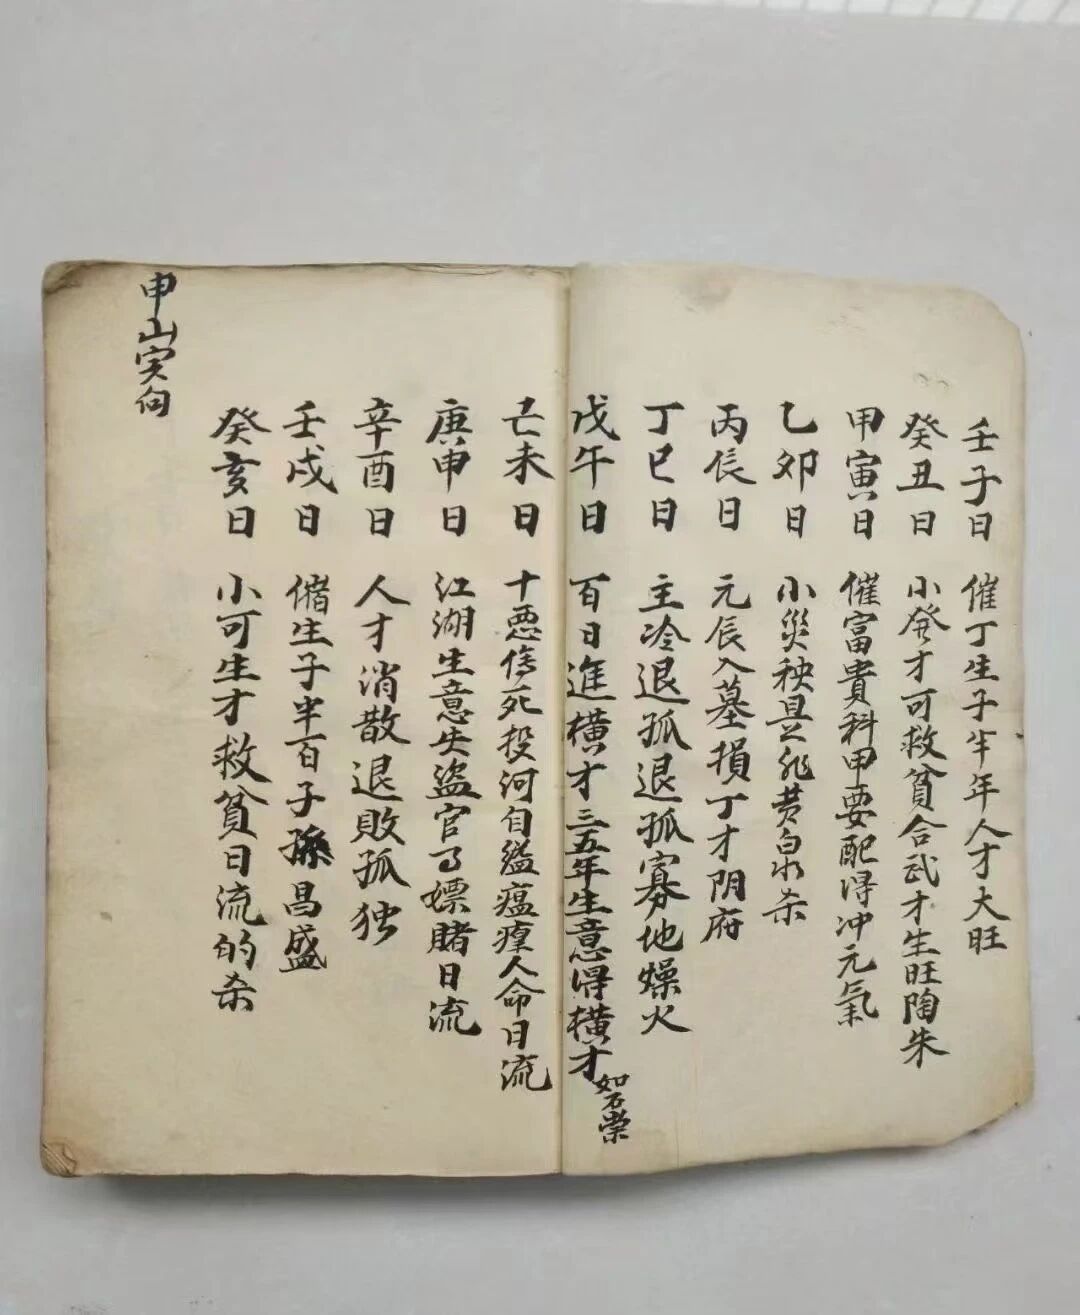 壬子日 催丁生子半年人才大旺
癸丑日 小癸才可救貧合武才生旺陶朱
甲寅日 催富貴科甲要配得冲元氣
乙卯日 小災秧是非黄泉杀
丙辰日 元辰入墓損丁才阴府
丁巳日 主冷退孤退孤寡地燥火
戊午日 百日進横才三五年生意得横才
如石崇
己未日 十悪傷死投河自缢瘟瘴人命日流
庚申日 江湖生意失盗官了嫖賭日流
辛酉日 人才消散退敗孤独
壬戌日 催生子半百子孫昌盛
癸亥日 小可生才救貧日流的杀
申山寅向